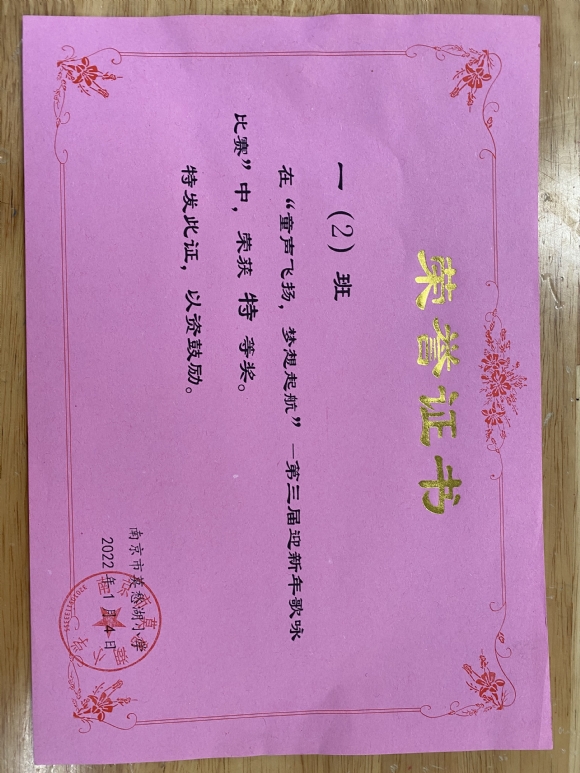 荣誉证书
一（2）班
在“童声飞扬，梦想起航”—第三届迎新年歌咏
比赛”中，荣获 特 等奖。
特发此证，以资鼓励。
南京市莫愁湖小学
2022年1月4日